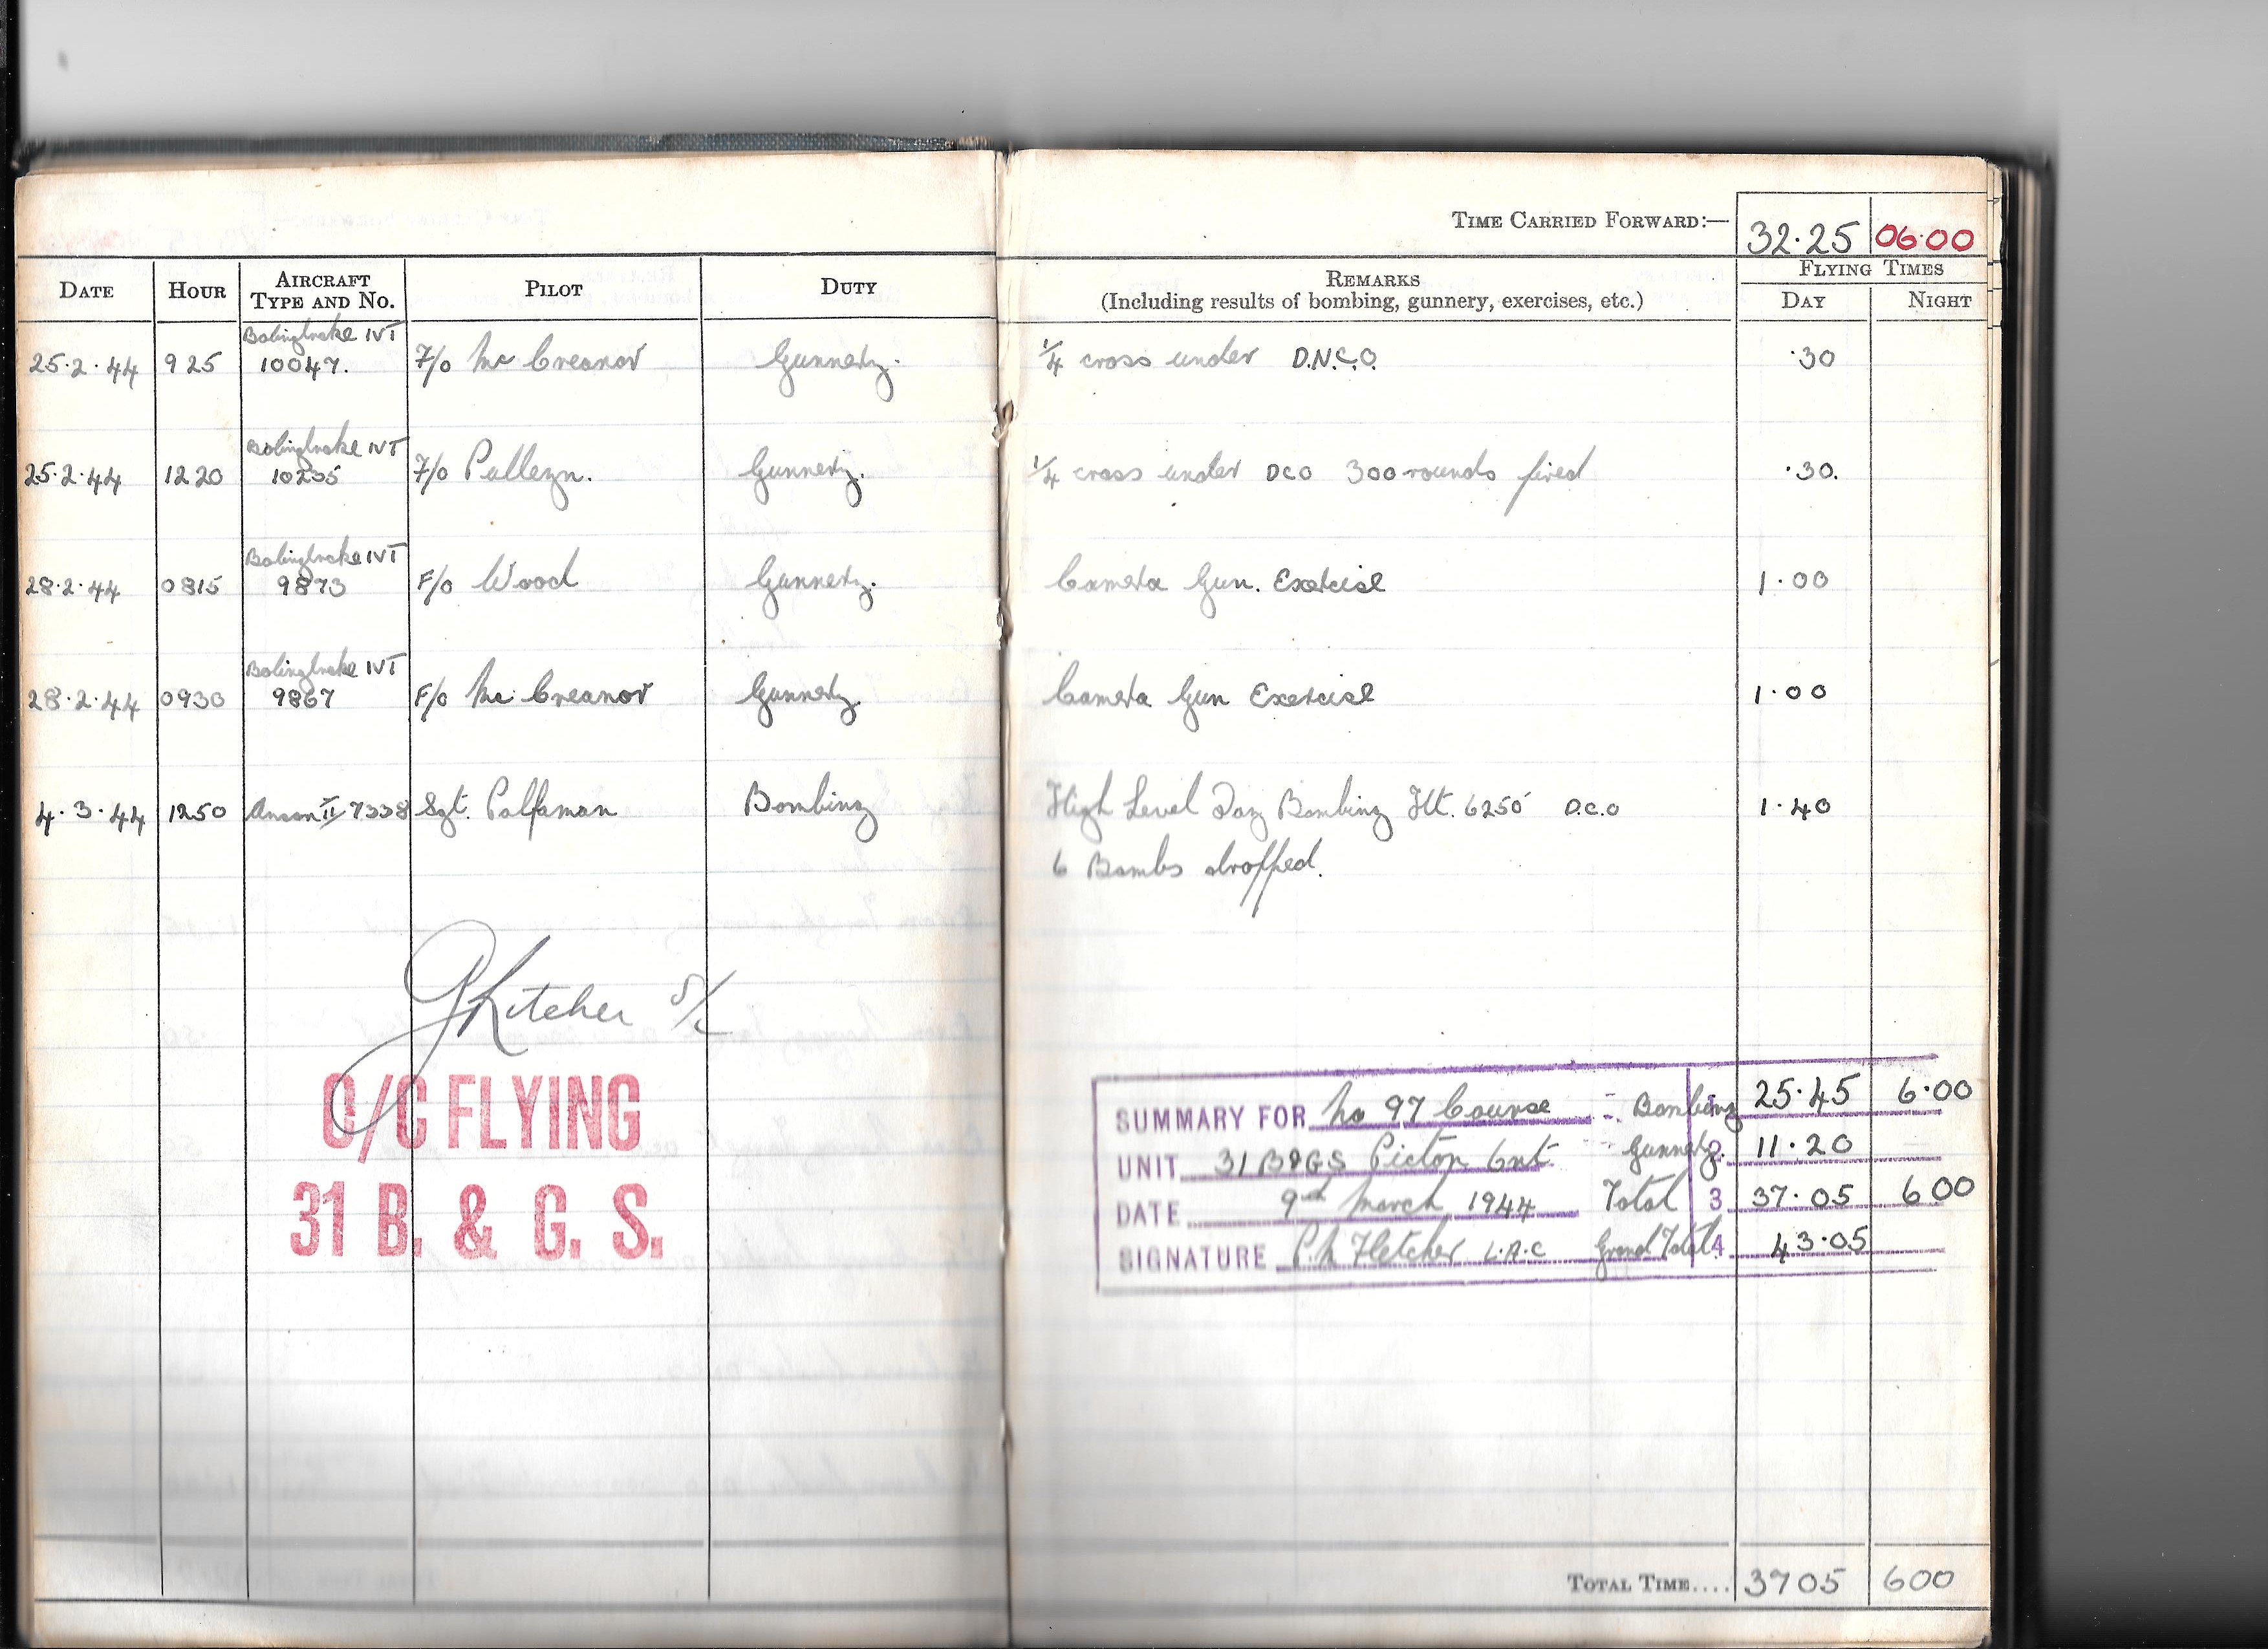 TIME CARRIED FORWARD:— 32·25 06·00
DATE HOUR AIRCRAFT TYPE AND NO. PILOT DUTY REMARKS (Including results of bombing, gunnery, exercises, etc.) FLYING TIMES DAY NIGHT
Bolingbroke IVT
25·2·44 925 10047. F/O Mc Creanor Gunnery. 1/4 cross under D.N.C.O. ·30
Bolingbroke IVT
25·2·44 1220 10235 F/O Pulleyn. Gunnery. 1/4 cross under DCO 300 rounds fired ·30.
Bolingbroke IVT
28·2·44 0815 9873 F/O Wood Gunnery. Camera Gun. Exercise 1·00
Bolingbroke IVT
28·2·44 0930 9867 F/O Mc Creanor Gunnery Camera Gun Exercise 1·00
4·3·44 1250 Anson II 7338 Sgt. Palfaman Bombing High Level Day Bombing Ht. 6250' D.C.O 1·40
6 Bombs dropped.
Kitcher S/L
O/C FLYING
31 B. & G. S.
SUMMARY FOR No 97 Course Bombing 1 25·45 6·00
UNIT 31 B&GS Picton Ont Gunnery 2 11·20
DATE 9th March 1944 Total 3 37·05 600
SIGNATURE P.N Fletcher L.A.C Grand Total 4 43·05
TOTAL TIME.... 3705 600